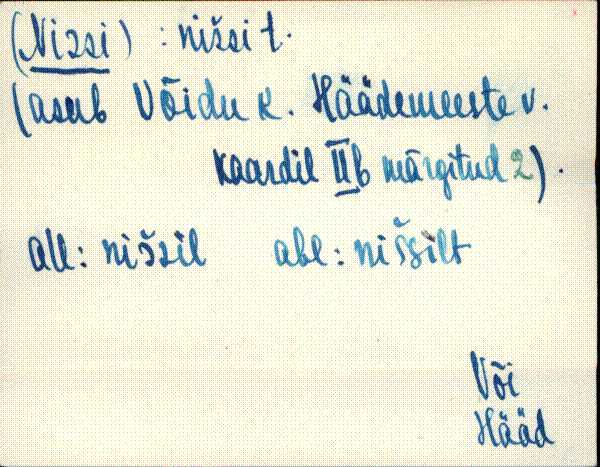 (Nissi) : nišsi t.
(asub Võidu k. Häädemeeste v.
kaardil IIb märgitud 2).
all: nišsil abl: nišsilt
Või
Hääd